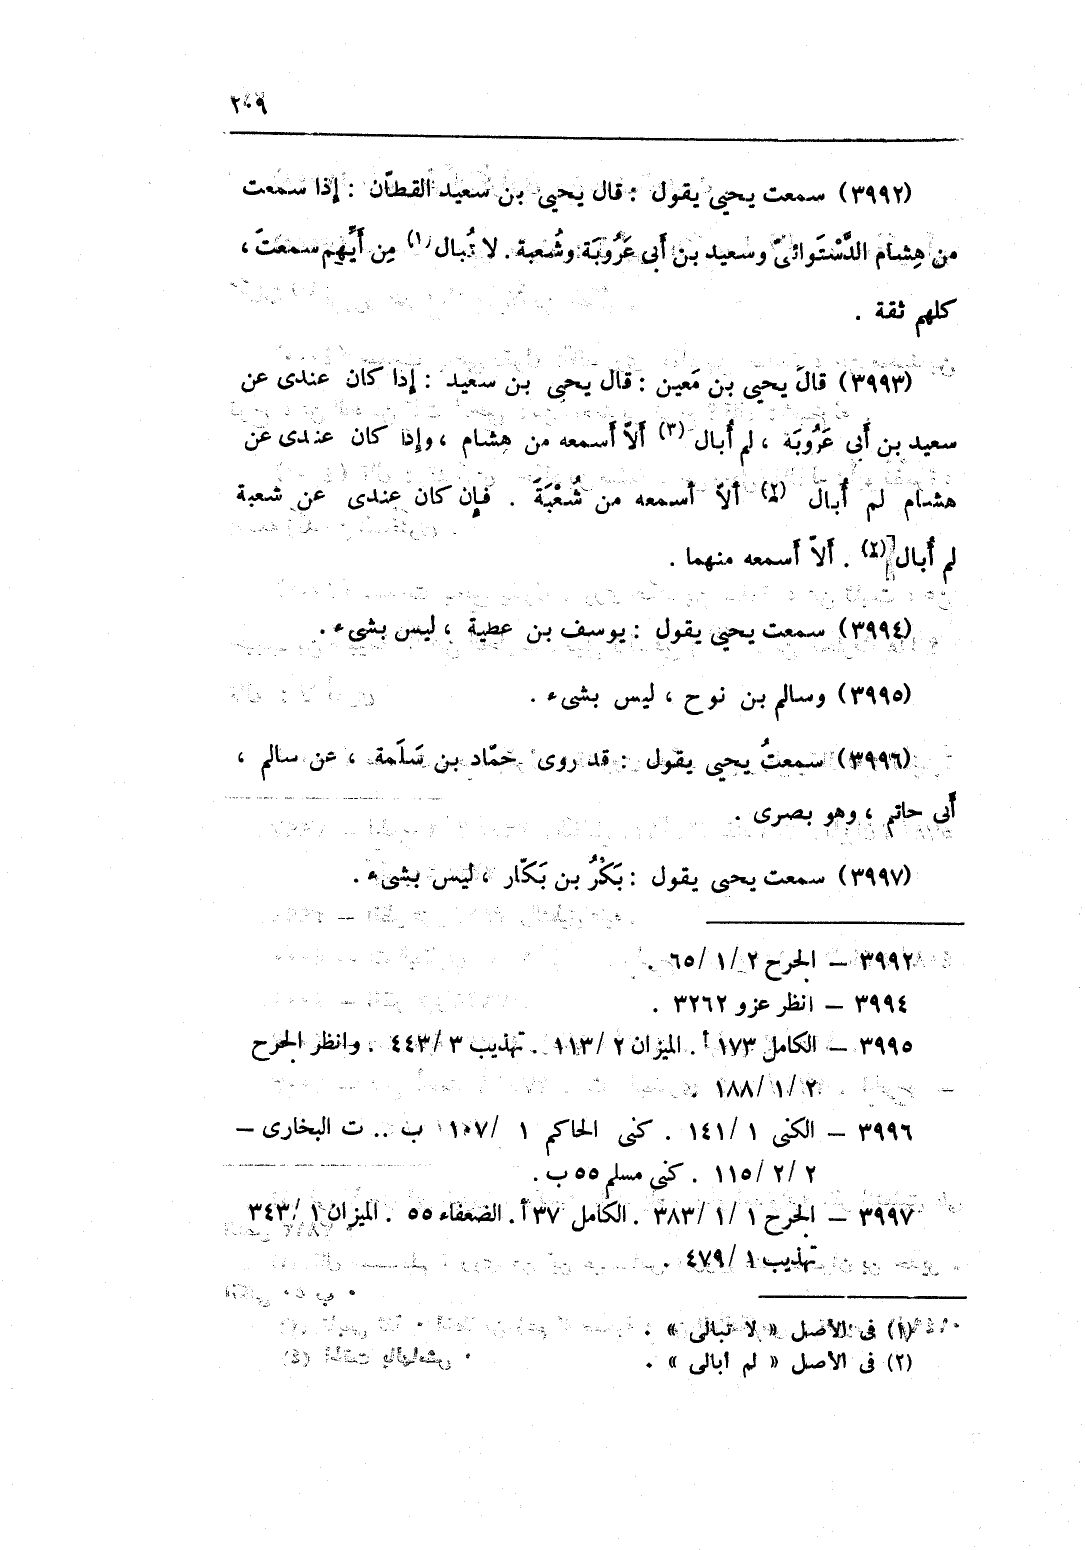 ٢٠٩
(٣٩٩٢) سمعت يحيى يقول : قال يحيى بن سعيد القطّان : إذا سمعت
من هِشام الدَّسْتَوائىّ وسعيد بن أَبى عَرُوبَة وشُعبة . لا تُبال (١) مِن أَيِّهم سمعتَ ،
كلهم ثقة .
(٣٩٩٣) قالَ يحيى بن مَعين : قال يحيى بن سعيد : إذا كان عندى عن
سعيد بن أَبى عَرُوبَة ، لم أُبال (٢) أَلاّ أَسمعه من هِشام ، وإذا كان عندى عن
هشام لم أُبال (٢) ألاّ أسمعه من شُعْبَةَ . فإن كان عندى عن شعبة
لم أُبال (٢) . أَلاّ أَسمعه منهما .
(٣٩٩٤) سمعت يحيى يقول : يوسف بن عطية ، ليس بشىء .
(٣٩٩٥) وسالم بن نوح ، ليس بشىء .
(٣٩٩٦) سمعتُ يحيى يقول : قد روى حمّاد بن سَلَمة ، عن سالم ،
أَبى حاتم ، وهو بصرى .
(٣٩٩٧) سمعت يحيى يقول : بَكْرُ بن بَكّار ، ليس بشىء .
٣٩٩٢ – الجرح ٢ /١ /٦٥ .
٣٩٩٤ – انظر عزو ٣٢٦٢ .
٣٩٩٥ – الكامل ١٧٣ أ . الميزان ٢ /١١٣ . تهذيب ٣ /٤٤٣ . وانظر الجرح
٢ /١ /١٨٨ .
٣٩٩٦ – الكنى ١ /١٤١ . كنى الحاكم ١ /١٠٧ ب .. ت البخارى –
٢ /٢ /١١٥ . كنى مسلم ٥٥ ب .
٣٩٩٧ – الجرح ١ /١ /٣٨٣ . الكامل ٣٧ أ . الضعفاء ٥٥ . الميزان ١ /٣٤٣
تهذيب ١ /٤٧٩ .
(١) فى الأصل « لا تبالى » .
(٢) فى الأصل « لم أبالى » .